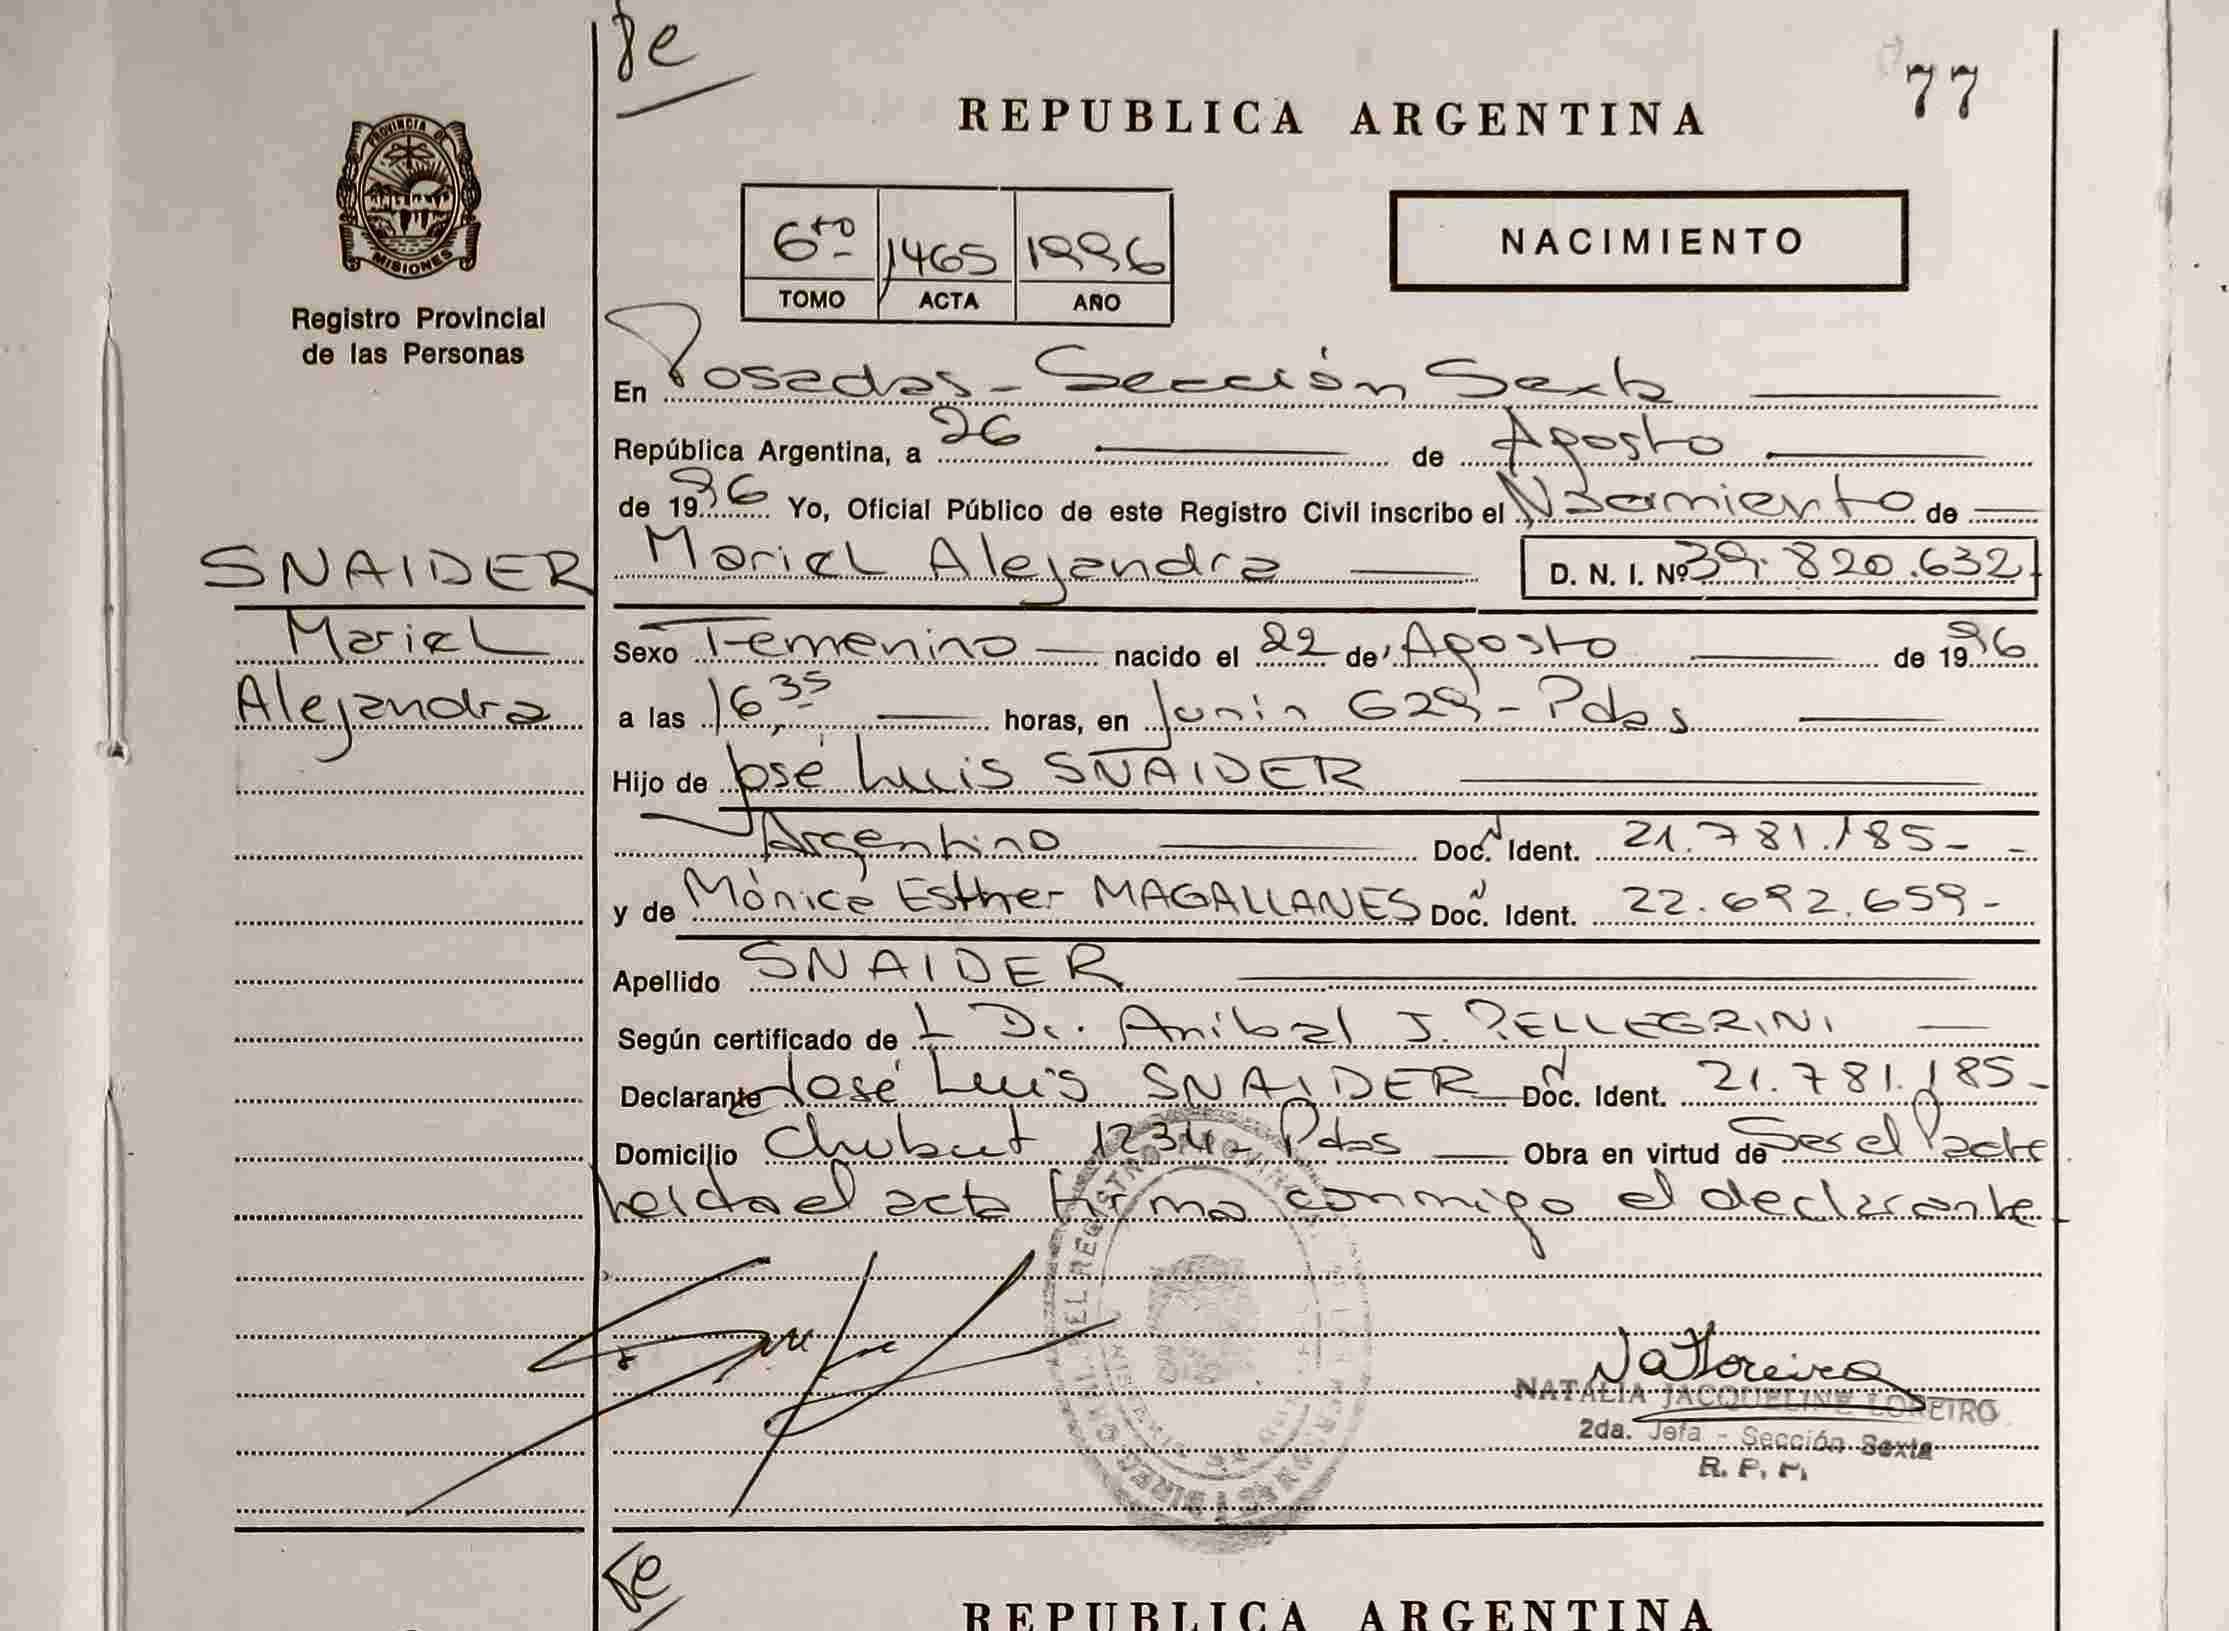 fe
77
REPUBLICA ARGENTINA
PROVINCIA DE
MISIONES
Registro Provincial
de las Personas
6to 1465 1996
TOMO ACTA AÑO
NACIMIENTO
En Posadas - Sección Sexta
República Argentina, a 26 de Agosto
de 1996 Yo, Oficial Público de este Registro Civil inscribo el Nacimiento de
Mariel Alejandra D. N. I. Nº 39.820.632
SNAIDER
Mariel
Alejandra
Sexo Femenino nacido el 22 de Agosto de 1996
a las 16,35 horas, en Junin 629 - Pdas
Hijo de José Luis SNAIDER
Argentino Doc. Ident. 21.781.185-
y de Mónica Esther MAGALLANES Doc. Ident. 22.692.659-
Apellido SNAIDER
Según certificado de L Dr. Anibal J. PELLEGRINI
Declarante José Luis SNAIDER Doc. Ident. 21.781.185-
Domicilio Chubut 1234 - Pdas Obra en virtud de Ser el Padre
leida el acta firma conmigo el declarante
NATALIA JACQUELINE LOREIRO
2da. Jefa - Sección Sexta
R. P. P.
fe
REPUBLICA ARGENTINA